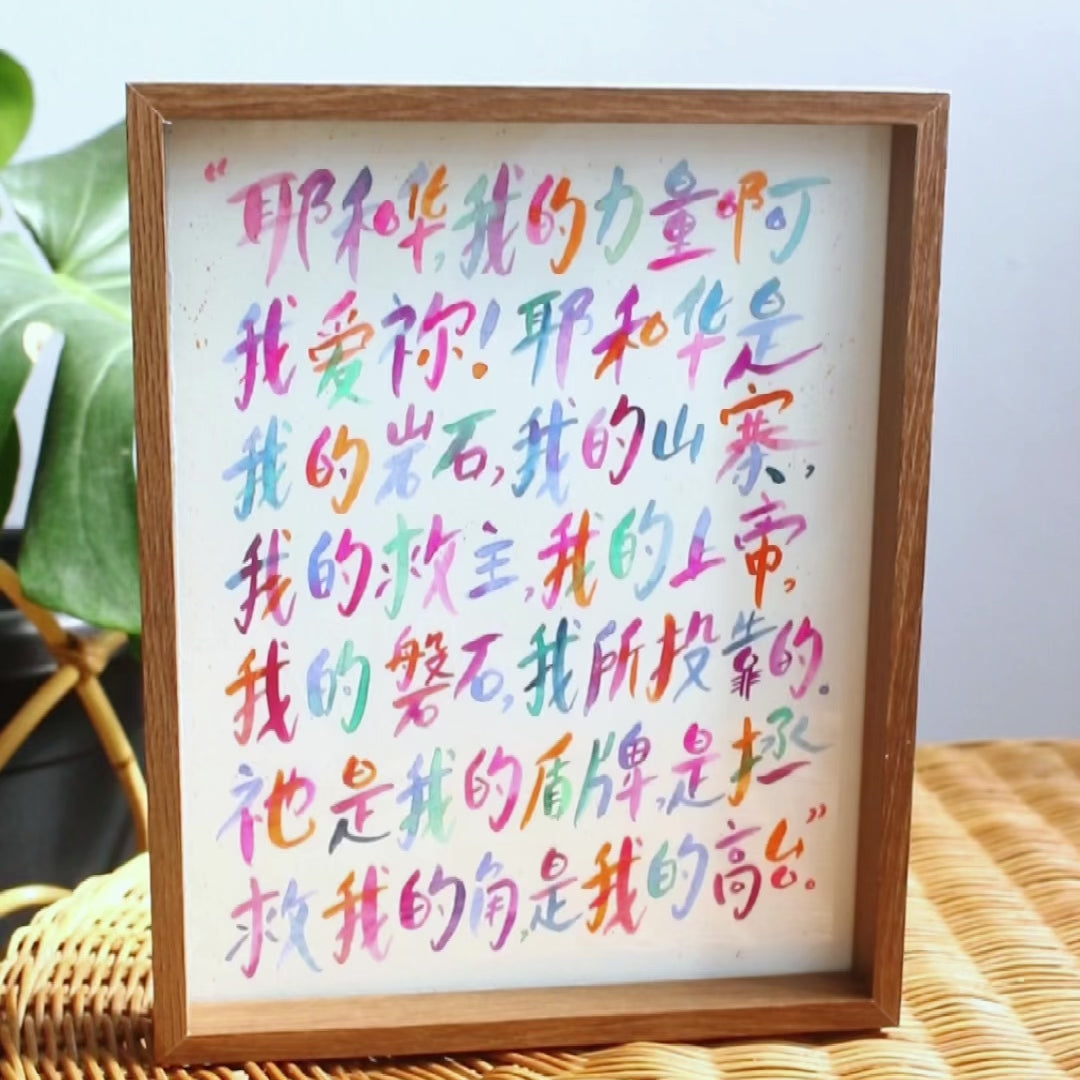 “耶和华,我的力量啊
我爱祢!耶和华是
我的岩石,我的山寨,
我的救主,我的上帝,
我的磐石,我所投靠的.
祂是我的盾牌,是拯
救我的角,是我的高台。”